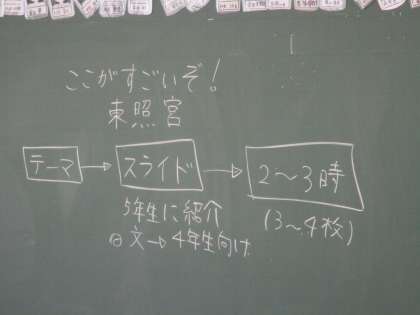 ここがすごいぞ!
東照宮
テーマ → スライド → 2～3時
5年生に紹介
(3～4枚)
文→4年生向け